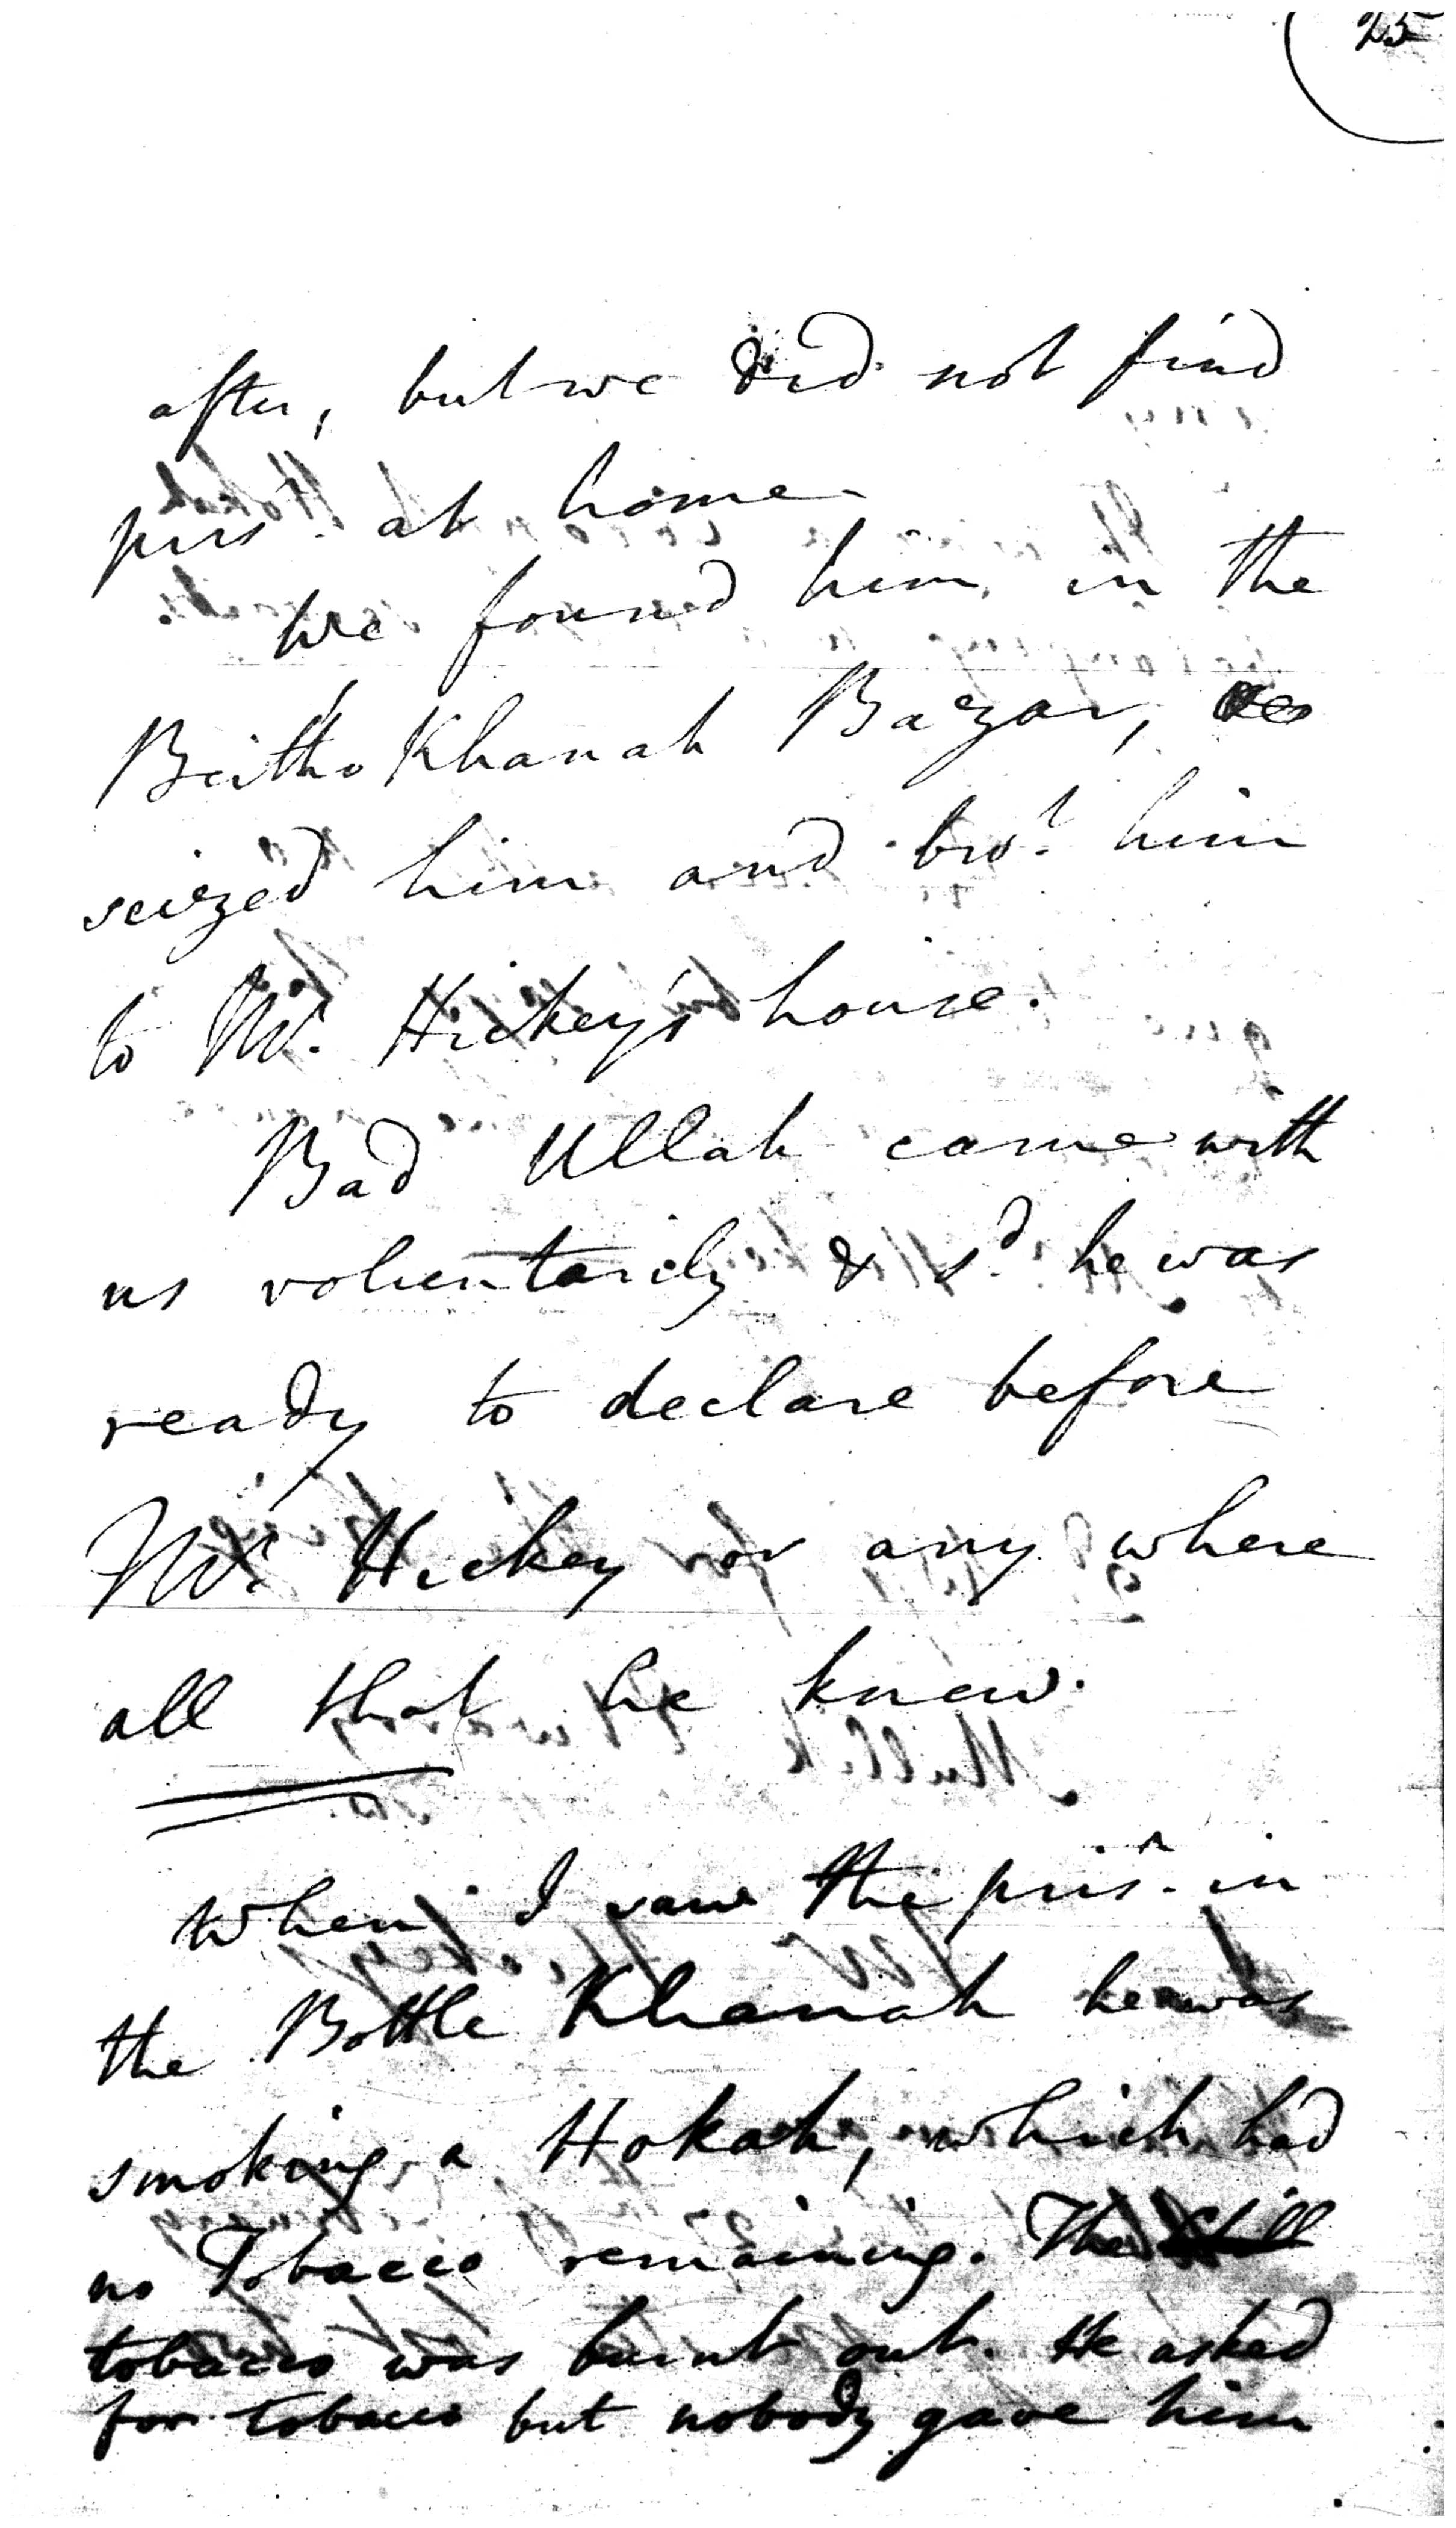 25
after, but we did not find
pris^r. at home.
We found him in the
Beitho Khanah Bazar,
seized him and bro^t. him
to M^r. Hickey's house.
Bad Ullah came with
us voluntarily & s^d. he was
ready to declare before
M^r. Hickey or any where
all that he knew.
When I saw the pris^r. in
the Bottle Khanah he was
smoking a Hokah, which had
no Tobacco remaining. The
tobacco was burnt out. He asked
for tobacco but nobody gave him